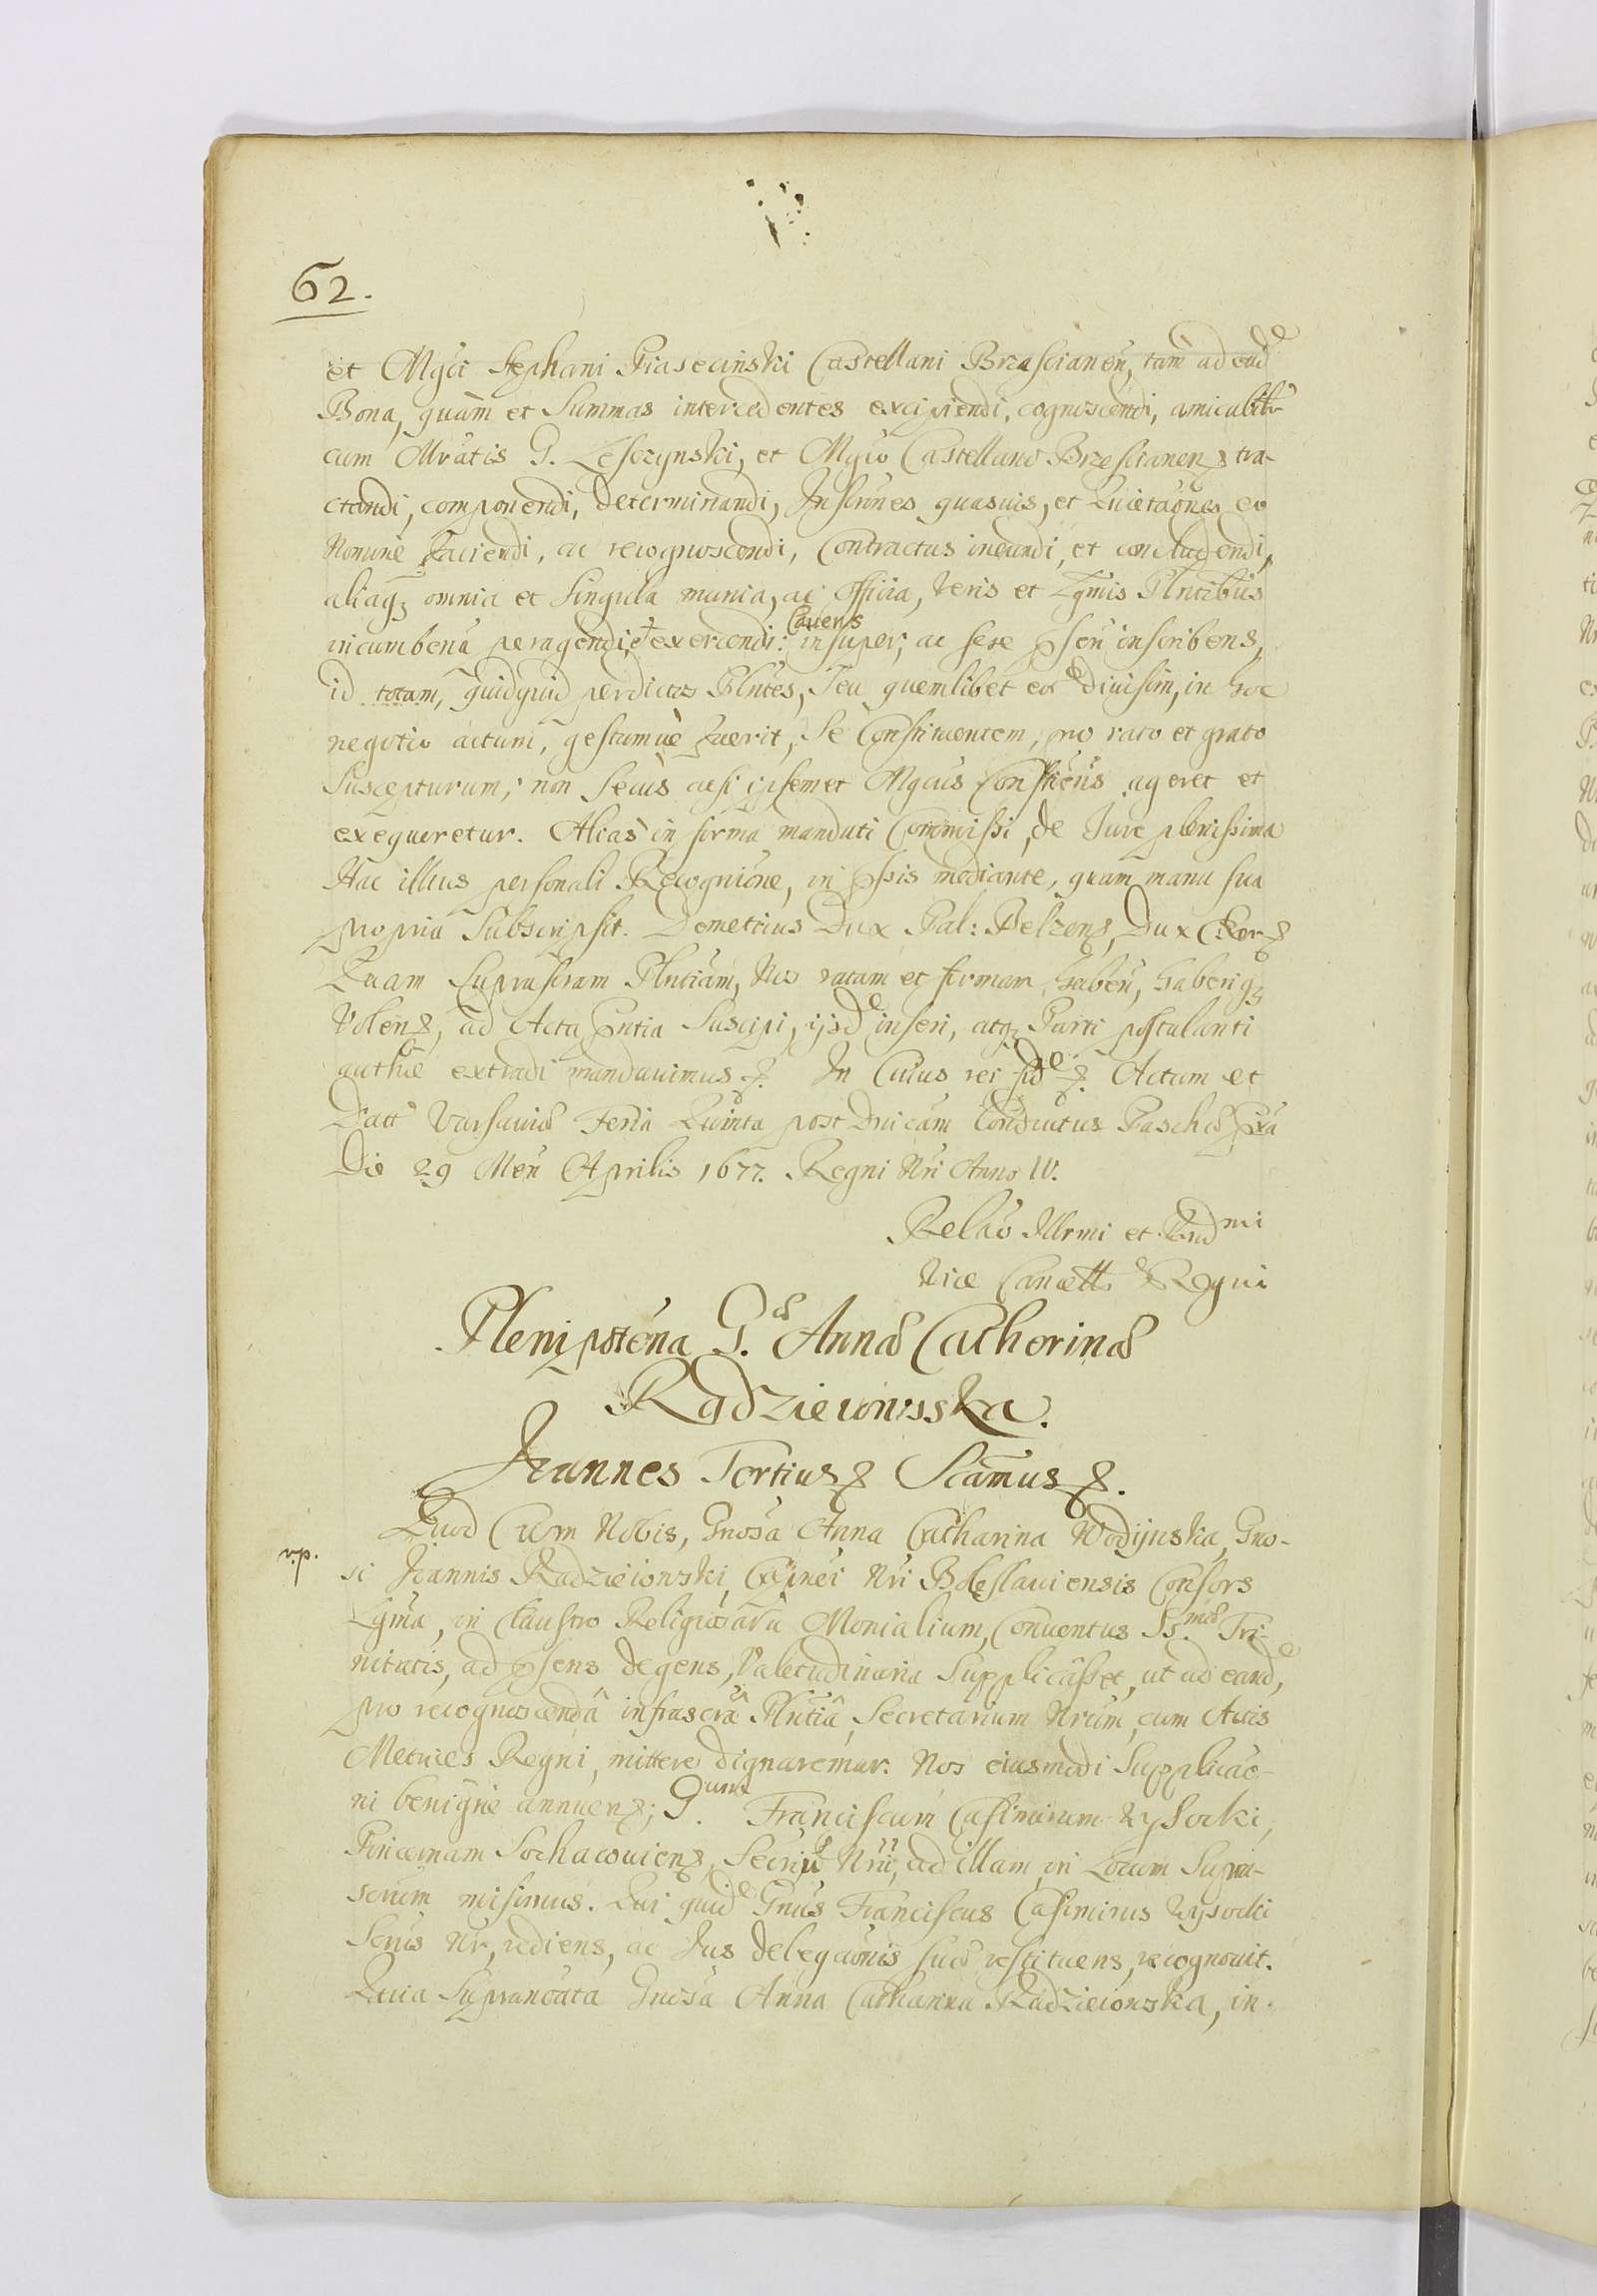 62.
et Mgci Stephani Piasecinski Castellani Brzescianen, tam ad ead
Bona, quàm et Summas intercedentes excipiendi, cognoscendi, amicabilr
cum Mratis G. Leszczynski, et Mgco Castellano Brzescianen tra-
ctandi, componendi, determinandi, Inscrines quasuis, et Quietaones eo
Nomine faciendi, ac recognoscendi, Contractus ineundi, et concludendi,
aliaq omnia et singula munia, ac officia, veris et Lgmis Plntibus
incumbena peragendi, et exercendi: Cavens insuper, ac sese psen inscribens,
id totum, quidquid perdictos Plntes, seu quemlibet eor divisim, in hoc
negotio actum, gestumuè fuerit, se Constituentem, pro rato et grato
suscepturum, non secus acsi ipsemet Mgcus Constiens ageret et
exequeretur. Alias in forma mandati Commissi, de Jure plenissima
Hac illius personali Recognione, in pssis mediante, quam manu sua
propria Subscripsit. Demetrius Dux Pal: Belzens, Dux C. Ror
Quam Suprascram Plntiam, Nos ratam et firman haben, haberiq
Volens, ad Acta pntia Suscipi, ijsd inseri, atq Parti postulanti
authce extradi mandavimus. In Cuius rei fid. Actum et
Datt Varsaviæ Feria Quinta post Dnicam Conductus Paschæ pxa
Die 29 Men Aprilis 1677. Regni Nri Anno IV.
Relao Illrmi et Rndmi
Vice Cancell Regni
Plenipotena G. Annæ Catherinæ
Radzieiowsska.
Joannes Tertius Scamus.
Quod Cum Nobis, Gnosa Anna Catharina Wodÿnska, Gno-
vp.
si Joannis Radzieiowski, Capnei Nri Boleslaviensis Consors
Lgma, in Claustro Religiosaru Monialium, Conventus SS.mæ Tri-
nitatis, ad psens degens, Valetudinaria Supplicasset, ut ad eand,
pro recognoscendâ infrascrâ Plntiâ, Secretarium Nrum, cum Actis
Metrices Regni, mittere dignaremur. Nos eiusmodi Supplicao-
ni benignè annuens; G.um Franciscum Casimirum Wysocki,
Pincernam Sochacoviens, Secriu Nru, ad illam, in Locum Supra-
scrum misimus. Qui quid Gnus Franciscus Casimirus Wysocki
Scrius Nr, rediens, ac Jus delegaonis suæ restituens, recognovit.
Quia Supranoata Gnosa Anna Catharina Radzieiowska, in-